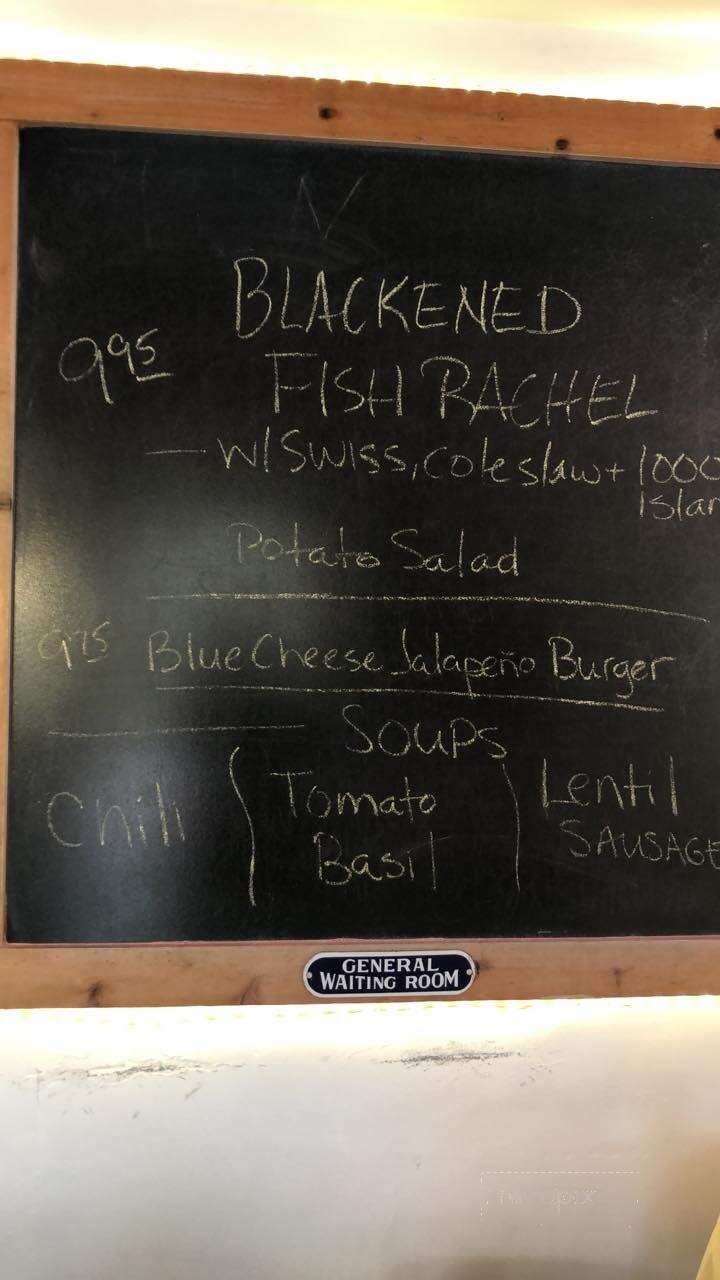 BLACKENED
995 FISH RACHEL
— W/SWISS, Coleslaw + 1000
Islan
Potato Salad
975 Blue Cheese Jalapeño Burger
SOUPS
Chili Tomato Lentil
Basil SAUSAGE
GENERAL
WAITING ROOM